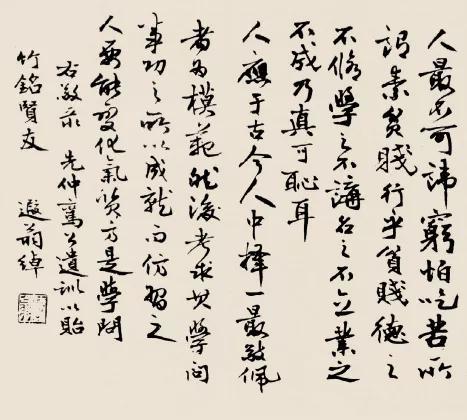 人最不可諱窮怕吃苦所
謂素貧賤行乎貧賤德之
不脩學之不講名之不立業之
不成乃真可恥耳
人應于古今人中擇一最敬佩
者為模範然後考求其學問
事功之所以成就而仿習之
人要能變化氣質方是學問
右敬錄 先仲鸞公遺訓以貽
竹銘賢友 遐翁綽